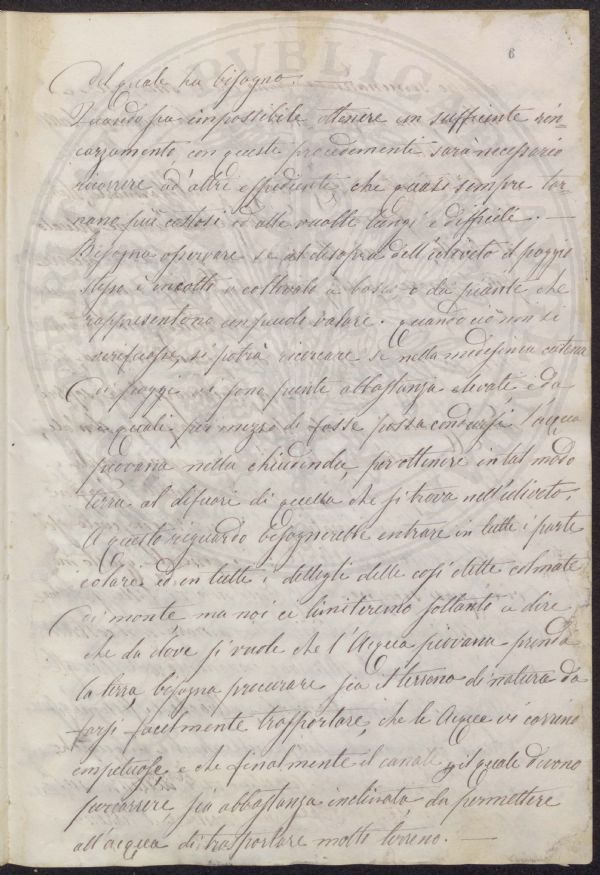 6
del quale ha bisogno.
Quando fia impossibile ottenere un sufficiente rin-
carzamento, con questi procedimenti sara necessario
ricorrere ad' altri espedienti che quasi sempre tor-
nano più costosi ed alle vuolte lungi e difficili. —
Bisogna osservare se al disopra dell'uliveto il poggio
stesso è incolto o coltivato a bosco o da piante che
rappresentono un picolo valore. quando ciò non si
verificasse, si potrà ricercare se nella medesima catena
di poggi vi sono punte abbastanza elevate, e da
quali per mezzo di fosse possa condursi l'acqua
piovana nella chiudenda, per ottenere in tal modo
terra al difuori di quella che si trova nell'uliveto.
A questo riguardo bisognerebbe entrare in tutti i parti
colari ed in tutti i dettegli delle cosi dette colmate
di monte ma noi ci limiteremo soltanto a dire
che da dove si vuole che l'Acqua piovana prenda
la terra, bisogna procurare sia il terreno di natura da
farsi facilmente trasportare, che le Acque vi corrino
impetuose, e che finalmente il canale il quale devono
percorrere sia abbastanza inclinato da permettere
all'acqua di trasportare molto terreno. —